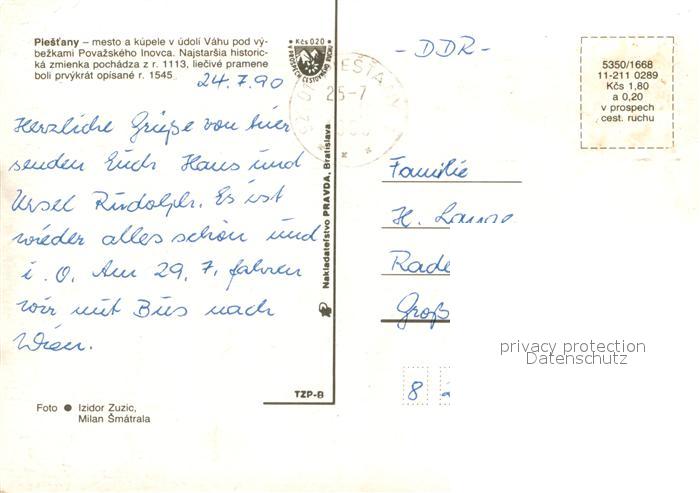 Piešťany – mesto a kúpele v údolí Váhu pod vý-
bežkami Považského Inovca. Najstaršia historic-
ká zmienka pochádza z r. 1113, liečivé pramene
boli prvýkrát opísané r. 1545
24.7.90
Herzliche Grüße von hier
senden Euch Hans und
Ursel Rudolph. Es ist
wieder alles schön und
i. O. Am 29. 7. fahren
wir mit Bus nach
Wien.
Foto ● Izidor Zuzic,
Milan Šmátrala
Kčs 020
V PROSPECH CESTOVNÉHO RUCHU
Nakladateľstvo PRAVDA, Bratislava
TZP-B
25-7
- DDR -
5350/1668
11-211 0289
Kčs 1,80
a 0,20
v prospech
cest. ruchu
Familie
H.
Rade
Groß
8
privacy protection
Datenschutz